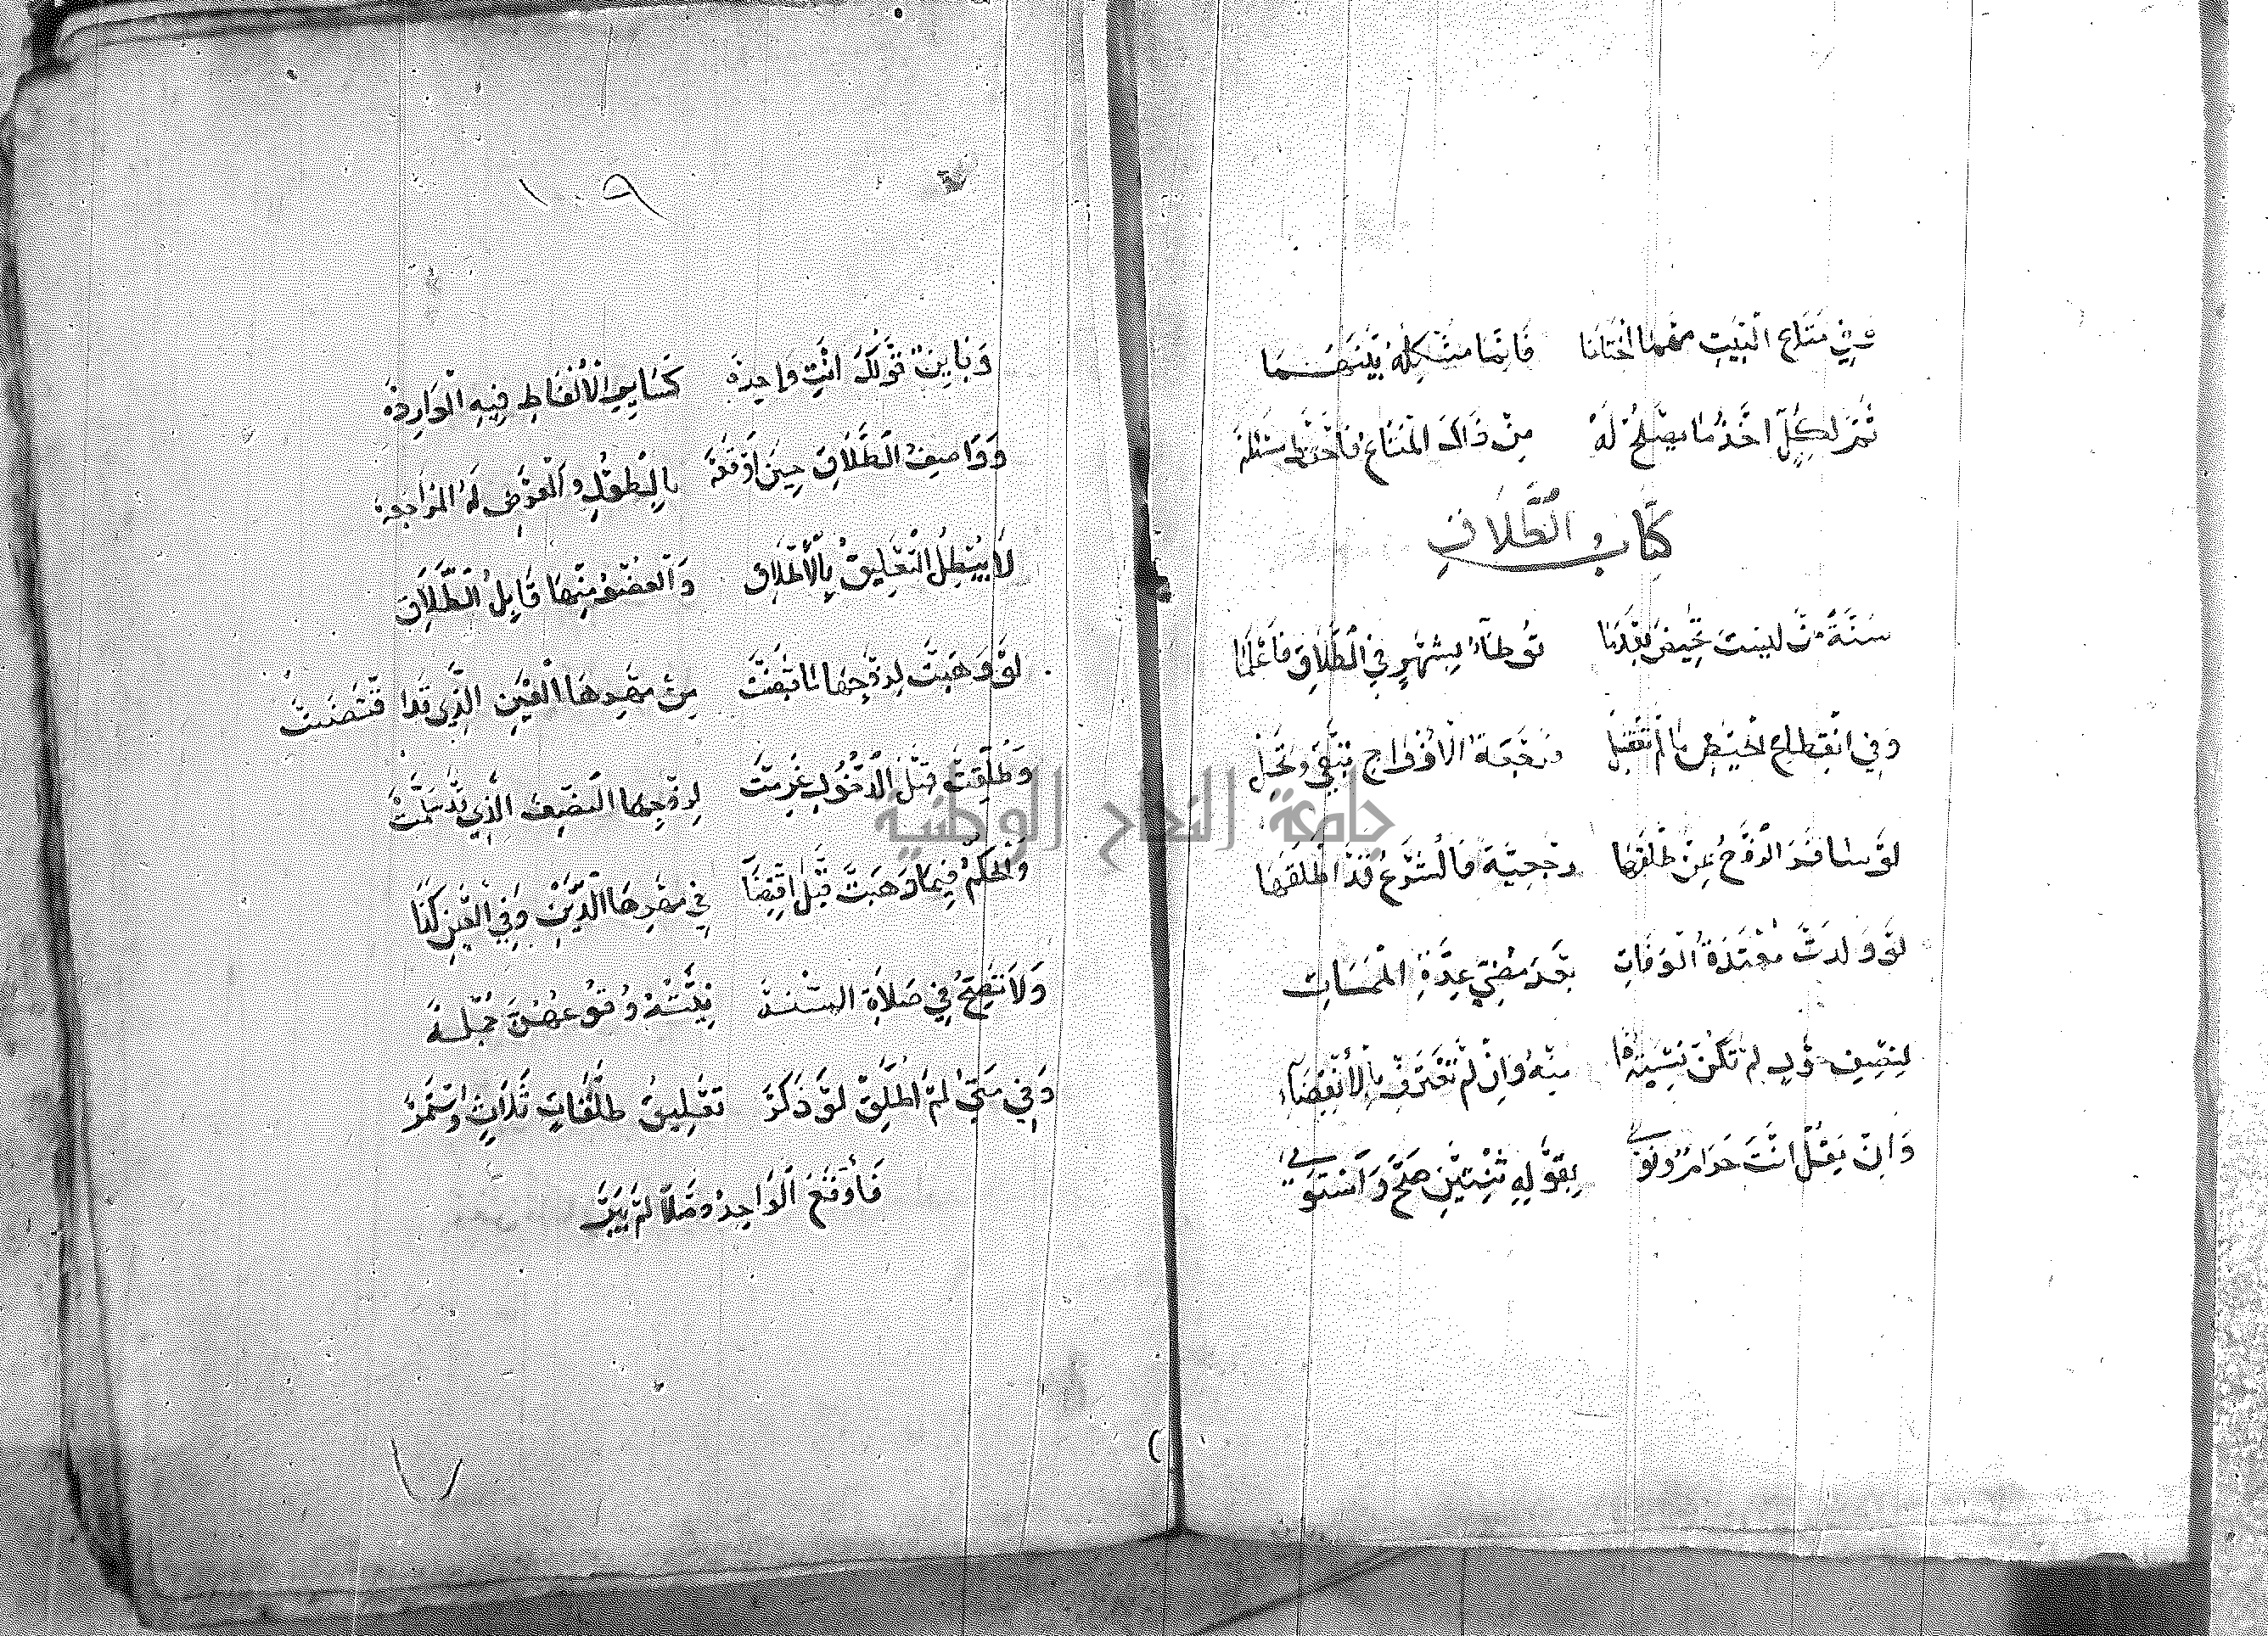 وَفِي مَتَاعِ الْبَيْتِ مَهْمَا اخْتَلَفَا فَإِنَّمَا مُشْكِلُهُ بَيْنَهُمَا
ثُمَّ لِكُلٍّ اخْذُ مَا يَصْلُحُ لَهُ مِنْ ذَاكَ الْمَتَاعِ فَاحْفَظْ
كِتَابُ الطَّلَاقِ
تُوطَأُ بِشَهْرٍ فِي الطَّلَاقِ فَاعْلَمَا
وَفِي انْقِطَاعِ الْحَيْضِ مَا لَمْ تَغْتَسِلْ وَرَجْعَةُ الْأَزْوَاجِ تَبْقَى وَتَحِلّ
لَوْ سَافَرَ الزَّوْجُ بِمَنْ طَلَّقَهَا رَجْعِيَّةً فَالشَّرْعُ قَدْ أَطْلَقَهَا
لَوْ وَلَدَتْ مُعْتَدَّةُ الْوَفَاتِ بَعْدَ مُضِيِّ عِدَّةِ الْمَمَاتِ
لِنِصْفِ حَوْلٍ لَمْ تَكُنْ نَسِيبَهُ مِنْهُ وَإِنْ لَمْ تَعْتَرِفْ بِالِانْقِضَاءِ
وَإِنْ يَقُلْ انْتِ حَرَامٌ وَنَوَى بِقَوْلِهِ ثِنْتَيْنِ صَحَّ وَاسْتَوَى
١٠٩
وَبَايِنٌ قَوْلُكَ انْتِ وَاحِدَةْ كَسَايِرِ الْأَلْفَاظِ فِيهِ الْوَارِدَةْ
وَوَاصِفُ الطَّلَاقِ حِينَ أَوْقَعَهْ بِالطُّولِ وَالْعَرْضِ لَهُ الْمُرَاجَعَهْ
لَا يُبْطِلُ التَّعْلِيقُ بِالْأَطْلَاقِ وَالْعُضْوُ مِنْهَا قَابِلُ الطَّلَاقِ
لَوْ وَهَبَتْ لِزَوْجِهَا مَا قَبَضَتْ مِنْ مَهْرِهَا الْعَيْنِ الَّذِي قَدِ اقْتَضَتْ
وَطُلِّقَتْ قَبْلَ الدُّخُولِ غَرِمَتْ لِزَوْجِهَا النِّصْفَ الَّذِي قَدْ سَلَّمَتْ
وَالْحُكْمُ فِيمَا وَهَبَتْ قَبْلَ اقْتِضَا فِي مَهْرِهَا الدَّيْنِ وَفِي الْعَيْنِ كَذَا
وَلَا تَصِحُّ فِي صَلَاةِ السُّنَّةْ نِيَّتُهُ وُقُوعَهُنَّ جُمْلَةْ
وَفِي مَتَى لَمْ أُطَلِّقْ لَوْ ذَكَرْ تَعْلِيقُ طَلْقَاتٍ ثَلَاثٍ وَاسْتَمَرْ
فَأَوْقَعَ الْوَاحِدَ وَصْلًا لَمْ
جامعة النجاح الوطنية